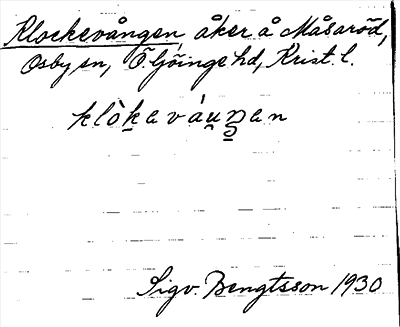 Klockevången, åker å Måsaröd,
Osby sn, Ö. Göinge hd, Krist. l.
klòkeváu̯ŋen
Sigv. Bengtsson 1930